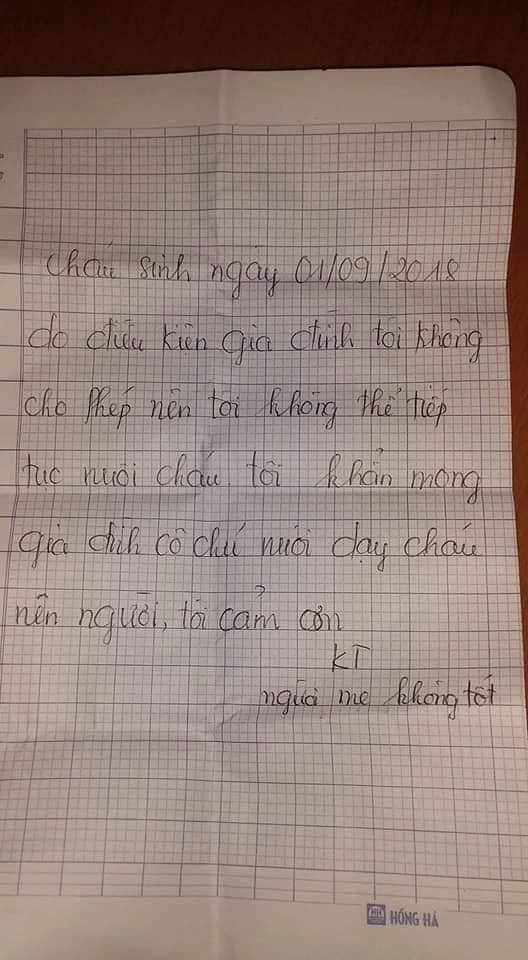 cháu sinh ngày 01/09/2018
do điều kiện gia đình tôi không
cho phép nên tôi không thể tiếp
tục nuôi cháu. tôi khẩn mong
gia đình cô chú nuôi dạy cháu
nên người, tôi cảm ơn
KT
người mẹ không tốt
HỒNG HÀ